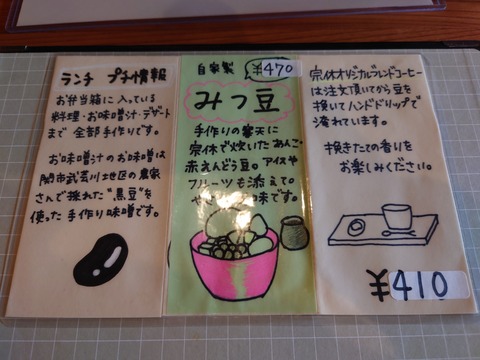 ランチ プチ情報
お弁当箱に入っている
料理・お味噌汁・デザート
まで 全部手作りです。
お味噌汁のお味噌は
関市武芸川地区の農家
さんで採れた"黒豆"を
使った手作り味噌です。
自家製 ¥470
みつ豆
手作りの寒天に
宗休で炊いたあんこ・
赤えんどう豆。アイスや
フルーツも添えて。
味です。
宗休オリジナルブレンドコーヒー
は注文頂いてから豆を
挽いてハンドドリップで
淹れています。
挽きたての香りを
お楽しみください。
¥410